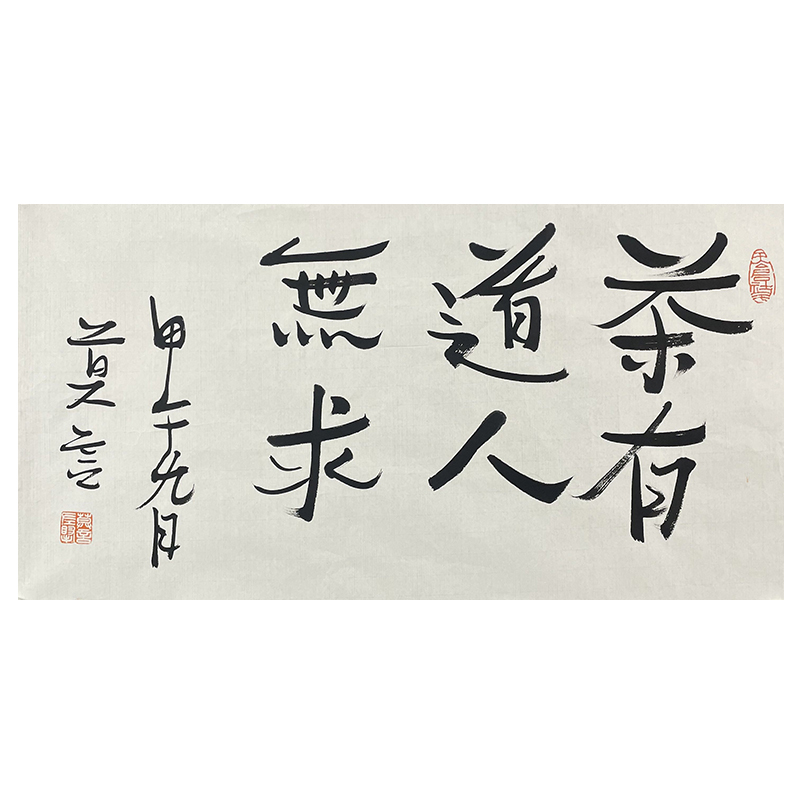 茶有
道人
無求
甲午九月
莫言